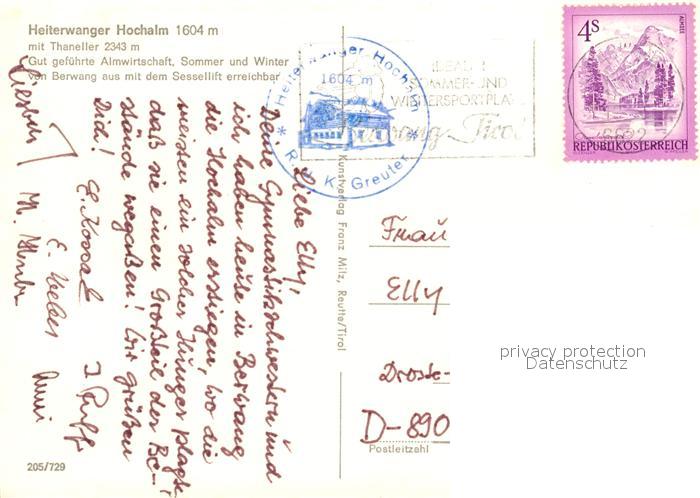 Heiterwanger Hochalm 1604 m
mit Thaneller 2343 m
Gut geführte Almwirtschaft, Sommer und Winter
von Berwang aus mit dem Sessellift erreichbar
Liebe Elly!
Deine Gymnastikschwestern und
ich haben heute in Berwang
die Hochalm erstiegen, wo die
meisten ein solcher Hunger plagte,
daß sie einen Großteil der Be-
stände wegaßen! Wir grüßen
Dich!
205/729
Kunstverlag Franz Milz, Reutte/Tirol
Heiterwanger Hochalm
1604 m
* R. u. K. Greuter *
IDEALER
SOMMER- UND
WINTERSPORTPLATZ
Berwang Tirol
4S
ALMSEE
REPUBLIK ÖSTERREICH
Frau
Elly
Droste-
D-890
Postleitzahl
privacy protection
Datenschutz